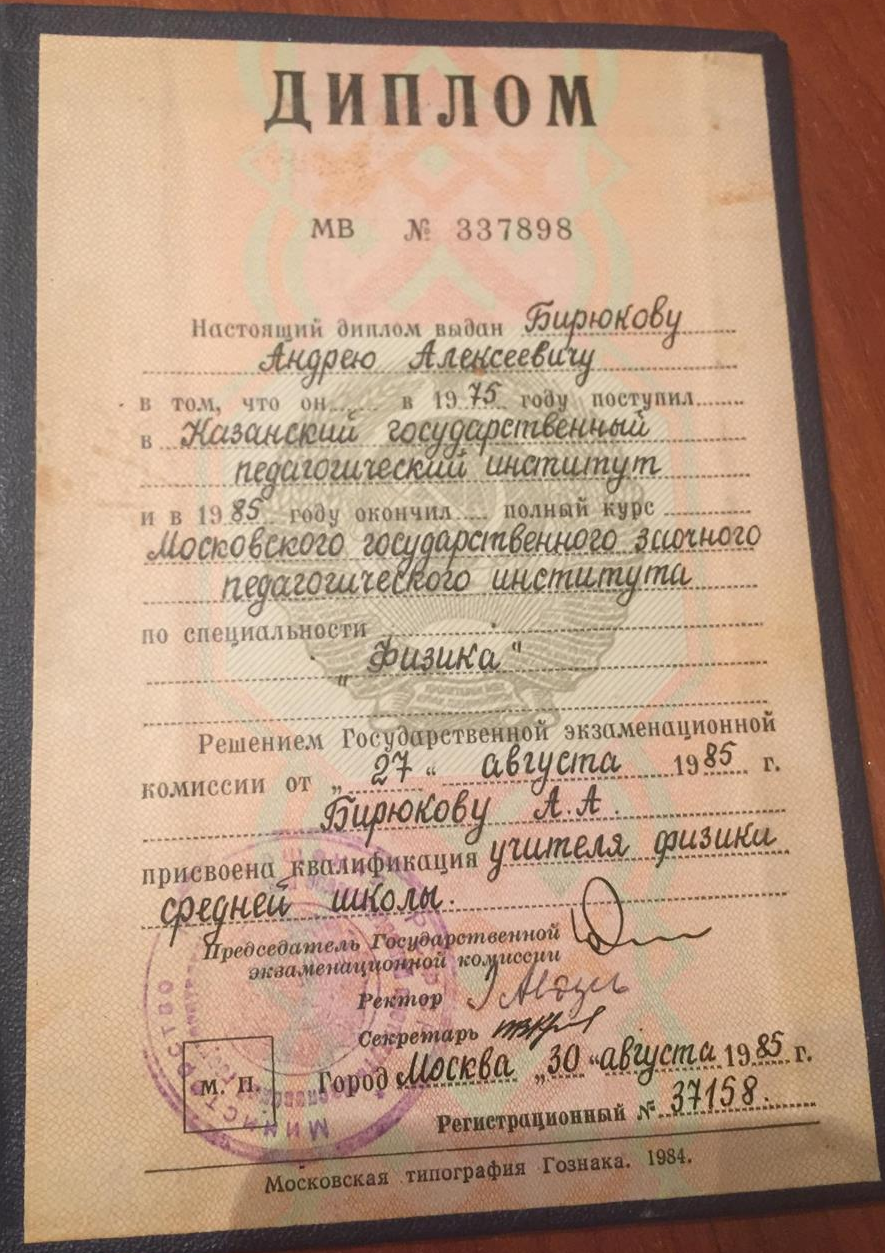 ДИПЛОМ
МВ № 337898
Настоящий диплом выдан Бирюкову
Андрею Алексеевичу
в том, что он в 1975 году поступил
в Казанский государственный
педагогический институт
и в 1985 году окончил полный курс
Московского государственного заочного
педагогического института
по специальности
„Физика"
Решением Государственной экзаменационной
комиссии от „27“ августа 1985 г.
Бирюкову А.А.
присвоена квалификация учителя физики
средней школы.
Председатель Государственной
экзаменационной комиссии
Ректор
Секретарь
М. П.
Город Москва „30“ августа 1985 г.
Регистрационный № 37158.
Московская типография Гознака. 1984.